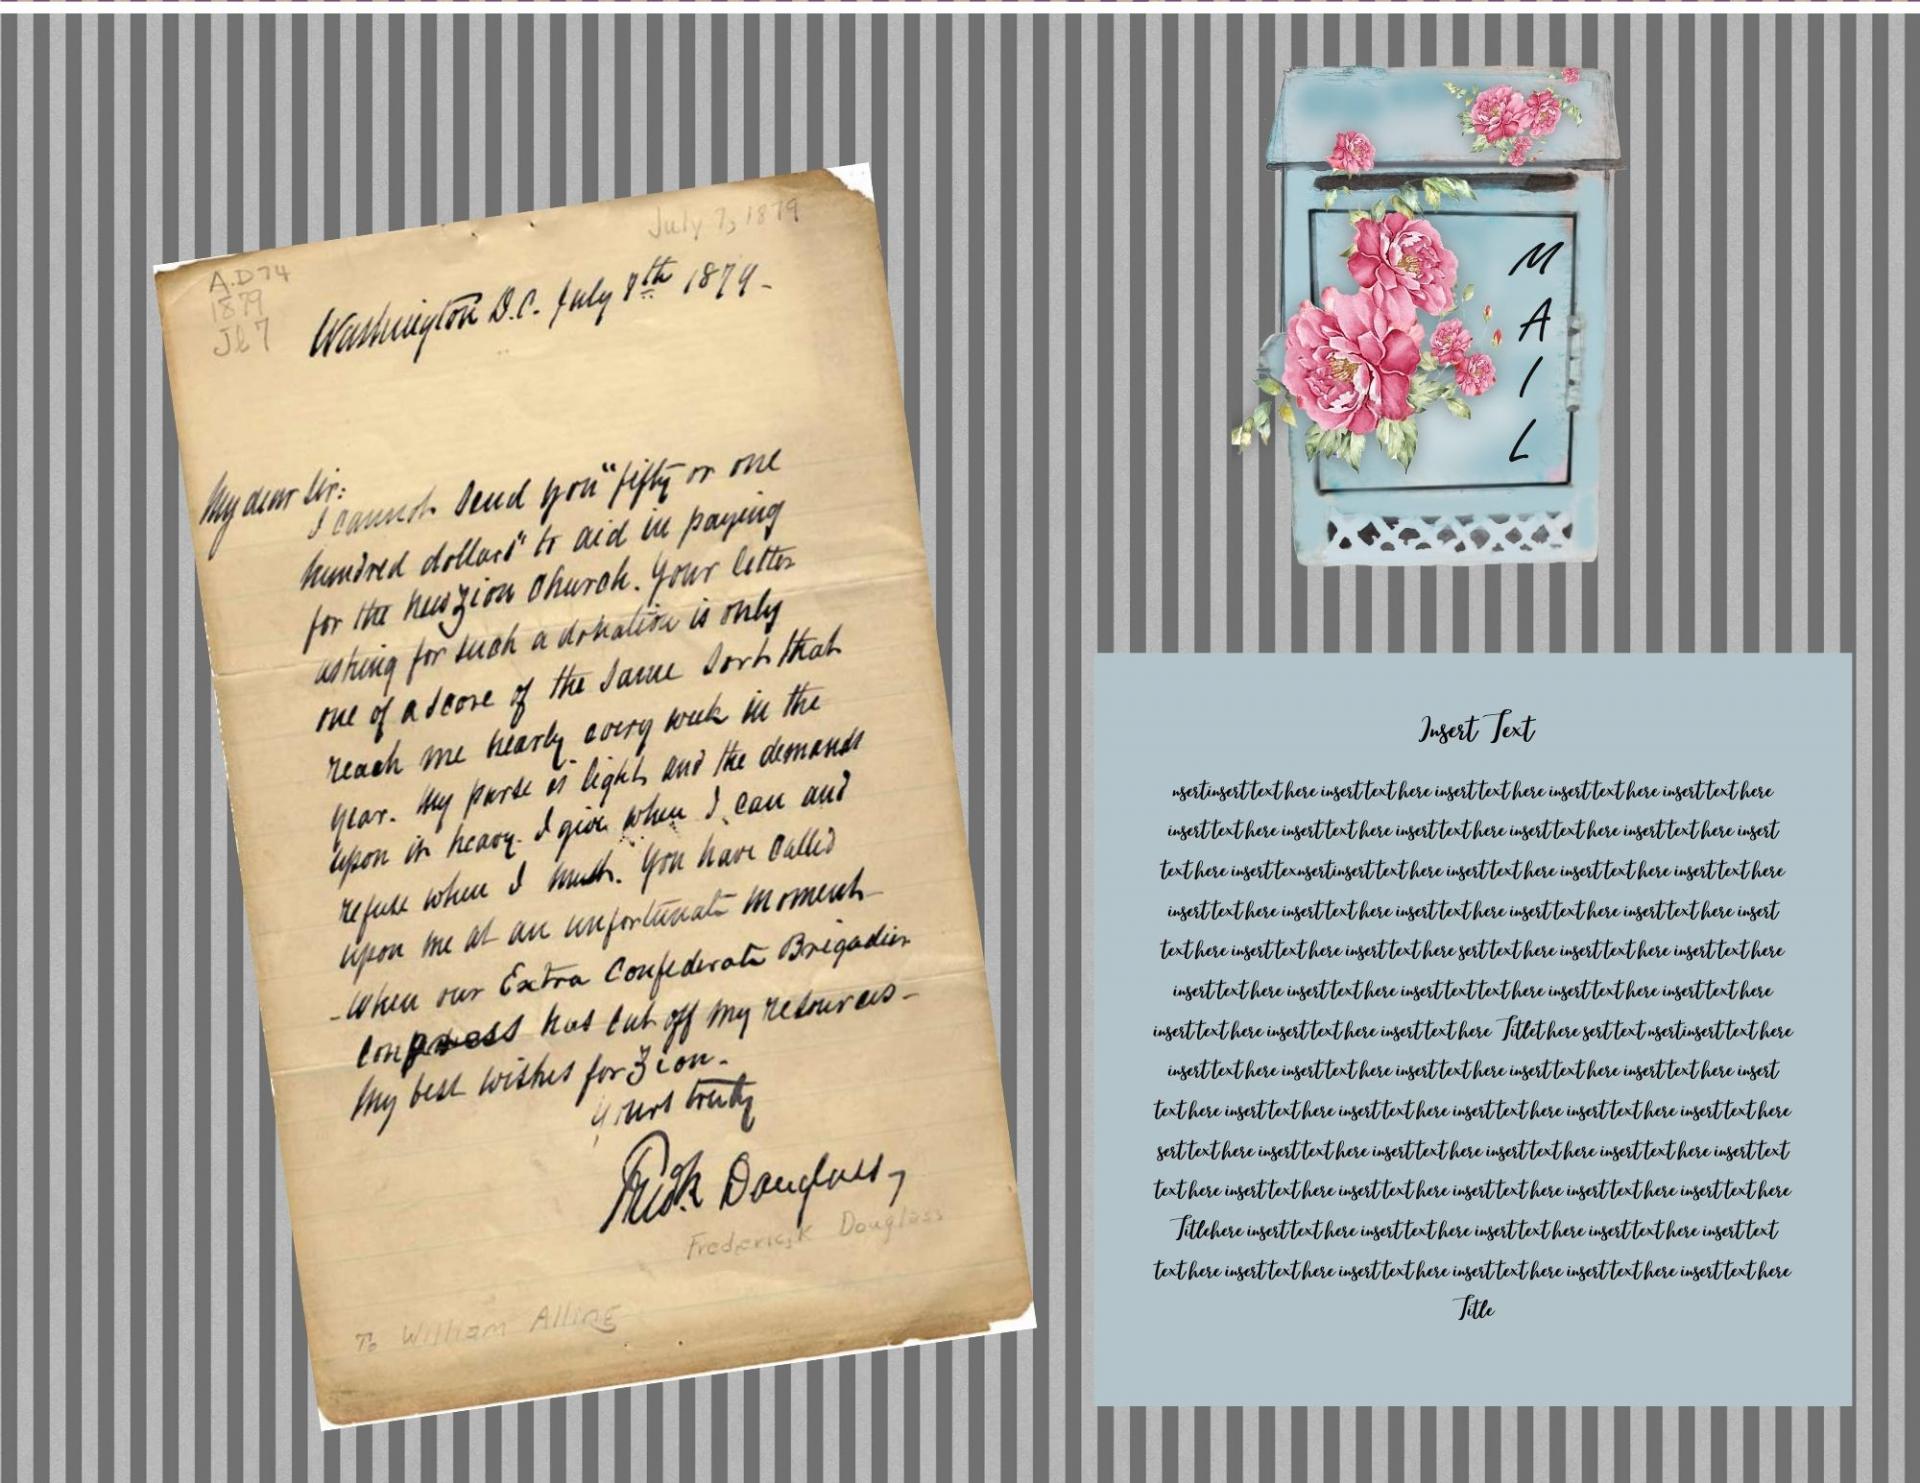 July 7, 1879
A.D74
1879
Jl 7
Washington D.C. July 7th 1879-
My dear Sir:
I cannot send you "fifty or one
hundred dollars" to aid in paying
for the new Zion Church. Your letter
asking for such a donation is only
one of a score of the same sort that
reach me nearly every week in the
year. My purse is light and the demands
upon it heavy. I give when I can and
refuse when I must. You have called
upon me at an unfortunate moment
- When our Extra Confederate Brigadier
Congress has cut off my resources-
My best wishes for Zion-
Yours truly
Fredk Douglass,
Frederick Douglass
To William Alling
M
A
I
L
Insert Text
nsertinsert text here insert text here insert text here insert text here insert text here
insert text here insert text here insert text here insert text here insert text here insert
text here insert texnsertinsert text here insert text here insert text here insert text here
insert text here insert text here insert text here insert text here insert text here insert
text here insert text here insert text here sert text here insert text here insert text here
insert text here insert text here insert text here insert text here insert text here
insert text here insert text here insert text here Titlet here sert text nsertinsert text here
insert text here insert text here insert text here insert text here insert text here insert
text here insert text here insert text here insert text here insert text here insert text here
sert text here insert text here insert text here insert text here insert text here insert text
text here insert text here insert text here insert text here insert text here insert text here
Titlehere insert text here insert text here insert text here insert text here insert text
text here insert text here insert text here insert text here insert text here insert text here
Title